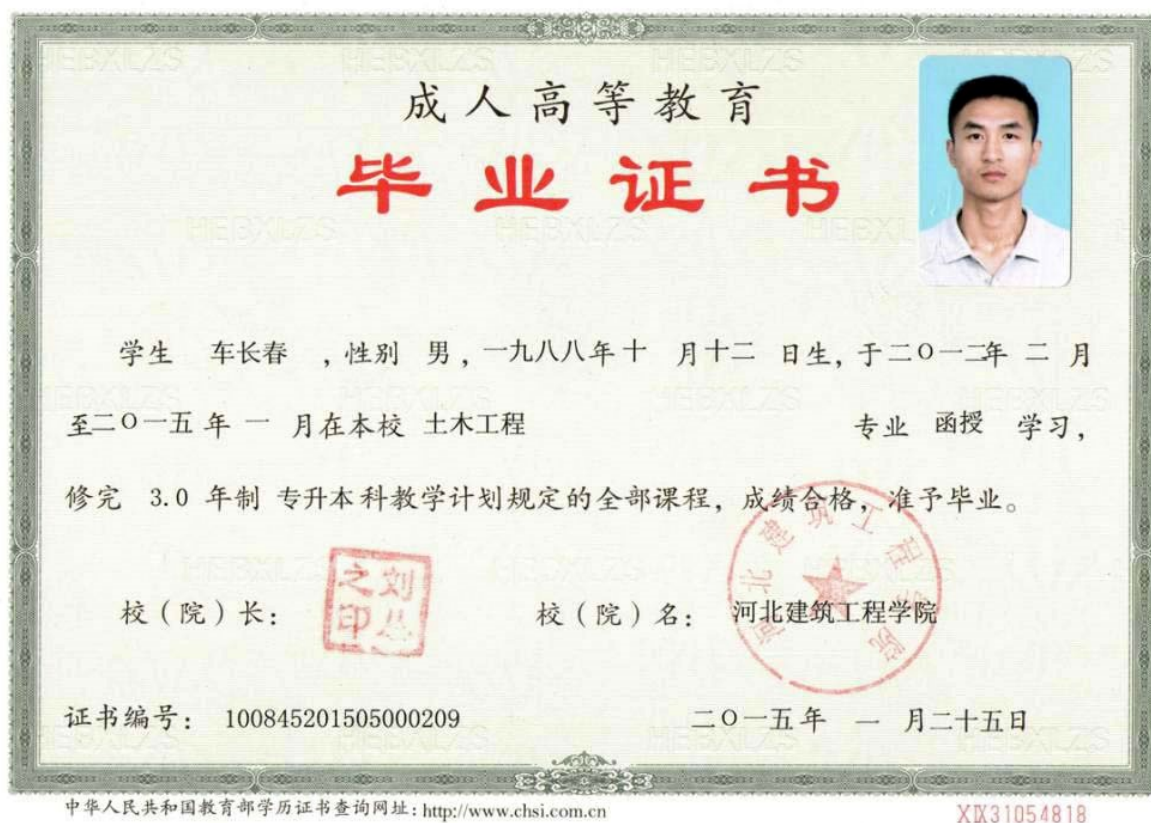 成人高等教育
毕业证书
学生 车长春 ，性别 男，一九八八年十 月十二 日生，于二〇一二年 二 月
至二〇一五 年 一 月在本校 土木工程 专业 函授 学习，
修完 3.0 年制 专升本科教学计划规定的全部课程，成绩合格，准予毕业。
校（院）长：
校（院）名： 河北建筑工程学院
河北建筑工程学院
证书编号： 100845201505000209
二〇一五年 一 月二十五日
中华人民共和国教育部学历证书查询网址：http://www.chsi.com.cn
XIX31054818
HEBXLZS